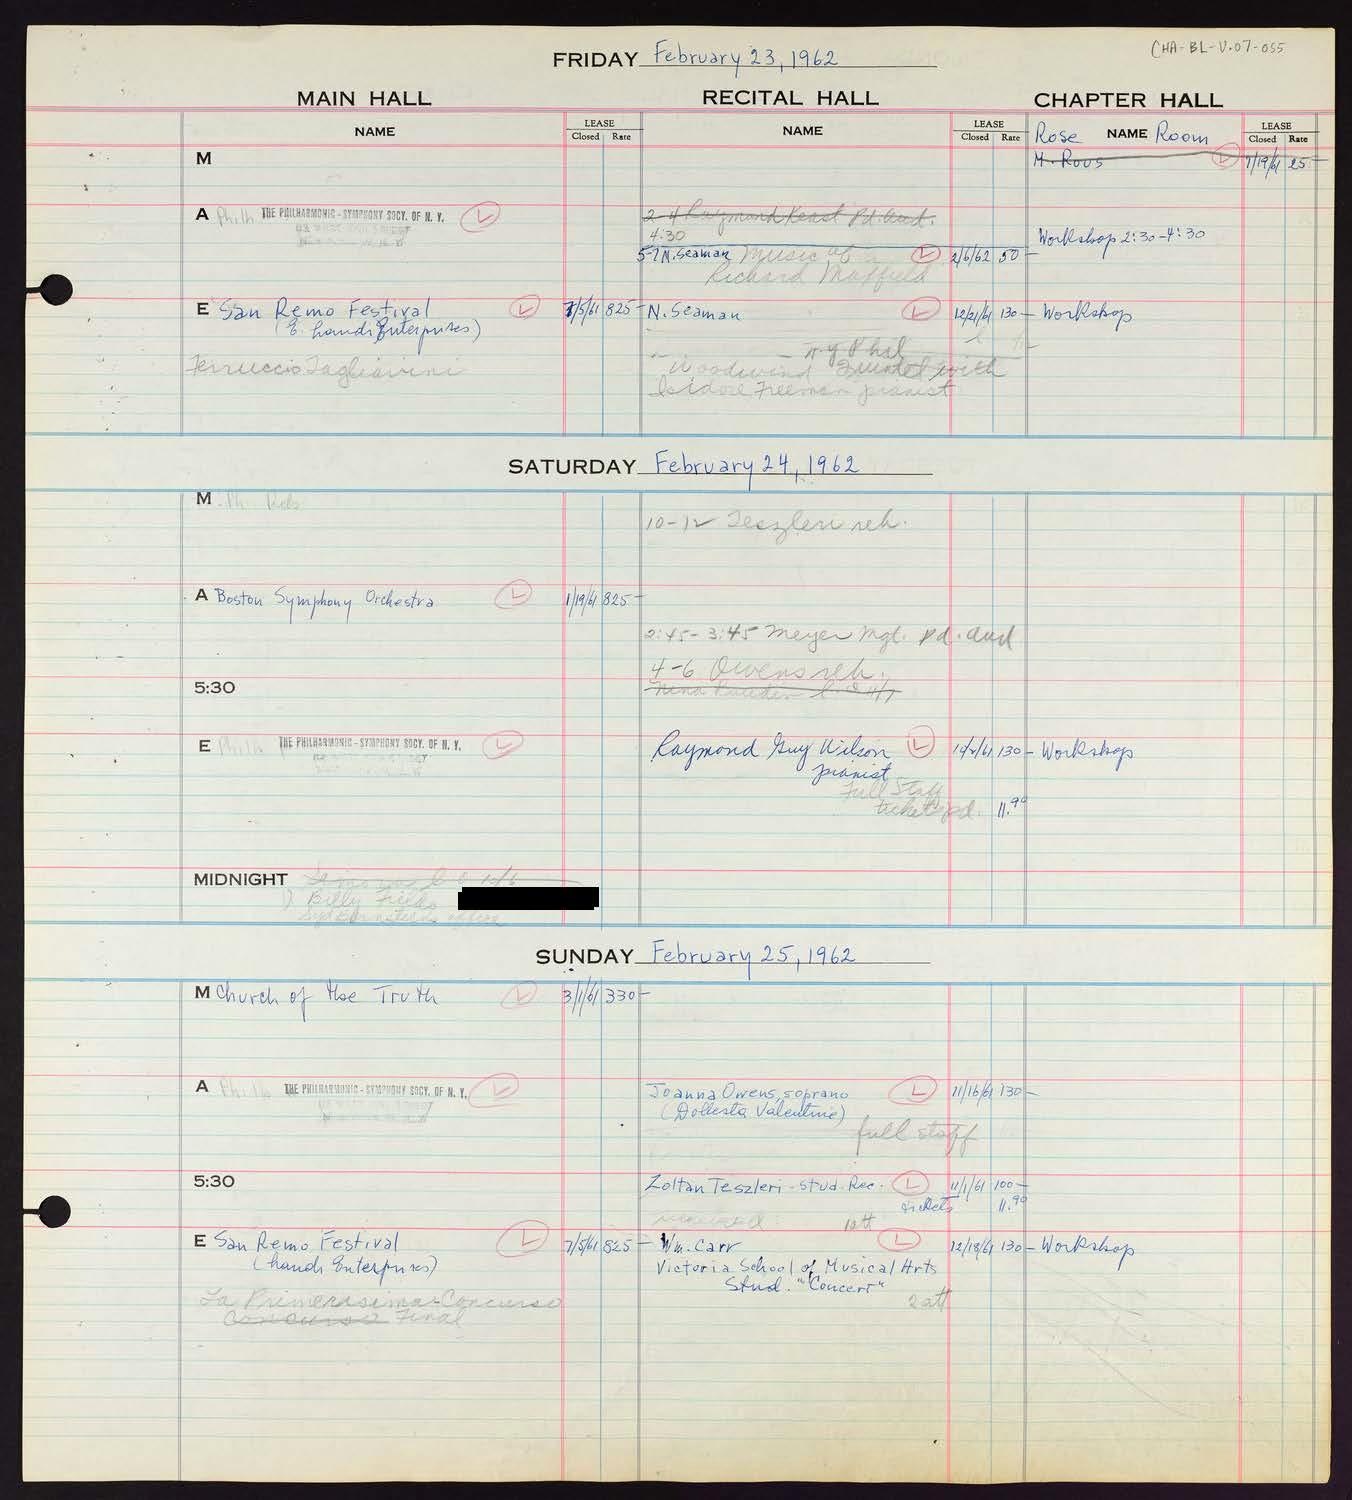 CHA-BL-V.07-055
FRIDAY February 23, 1962
MAIN HALL RECITAL HALL CHAPTER HALL
NAME LEASE Closed Rate NAME LEASE Closed Rate Rose NAME Room LEASE Closed Rate
M
M. Rous L 7/19/61 25-
A Philh THE PHILHARMONIC-SYMPHONY SOCY. OF N. Y. L
2-4 Raymond Keast Pd. Aud.
4:30
Workshop 2:30-4:30
5-7 N. Seaman Music of L 2/6/62 50-
Richard Maffield
E San Remo Festival L 7/5/61 825- N. Seaman L 12/21/61 130- Workshop
(E. Landi Enterprises)
N.Y. Phil
Ferruccio Tagliavini
Woodwind Quintet with
Isidore Freeman pianist
SATURDAY February 24, 1962
M Ph. Reh
10-12 Teszleri reh.
A Boston Symphony Orchestra L 1/19/61 825-
2:45-3:45 Meyer Mgt. Pd. Aud
4-6 Owens reh.
5:30
E Philh THE PHILHARMONIC-SYMPHONY SOCY. OF N. Y. L Raymond Guy Wilson L 130- Workshop
pianist
Full Staff
tickets pd. 11.90
MIDNIGHT
1) Billy Fields
Syd Bernstein's office
SUNDAY February 25, 1962
M Church of the Truth L 3/1/61 330-
A Philh THE PHILHARMONIC-SYMPHONY SOCY. OF N. Y. L Joanna Owens, soprano L 11/16/61 130-
(Dollesta Valentine)
full staff
5:30 Zoltan Teszleri - Stud. Rec. L 11/1/61 100-
tickets 11.90
1 att
E San Remo Festival L 7/5/61 825- Wm. Carr L 12/18/61 130- Workshop
(Landi Enterprises)
Victoria School of Musical Arts
Stud. "Concert"
2 att
La Primerasima Concurso
Concurso Final